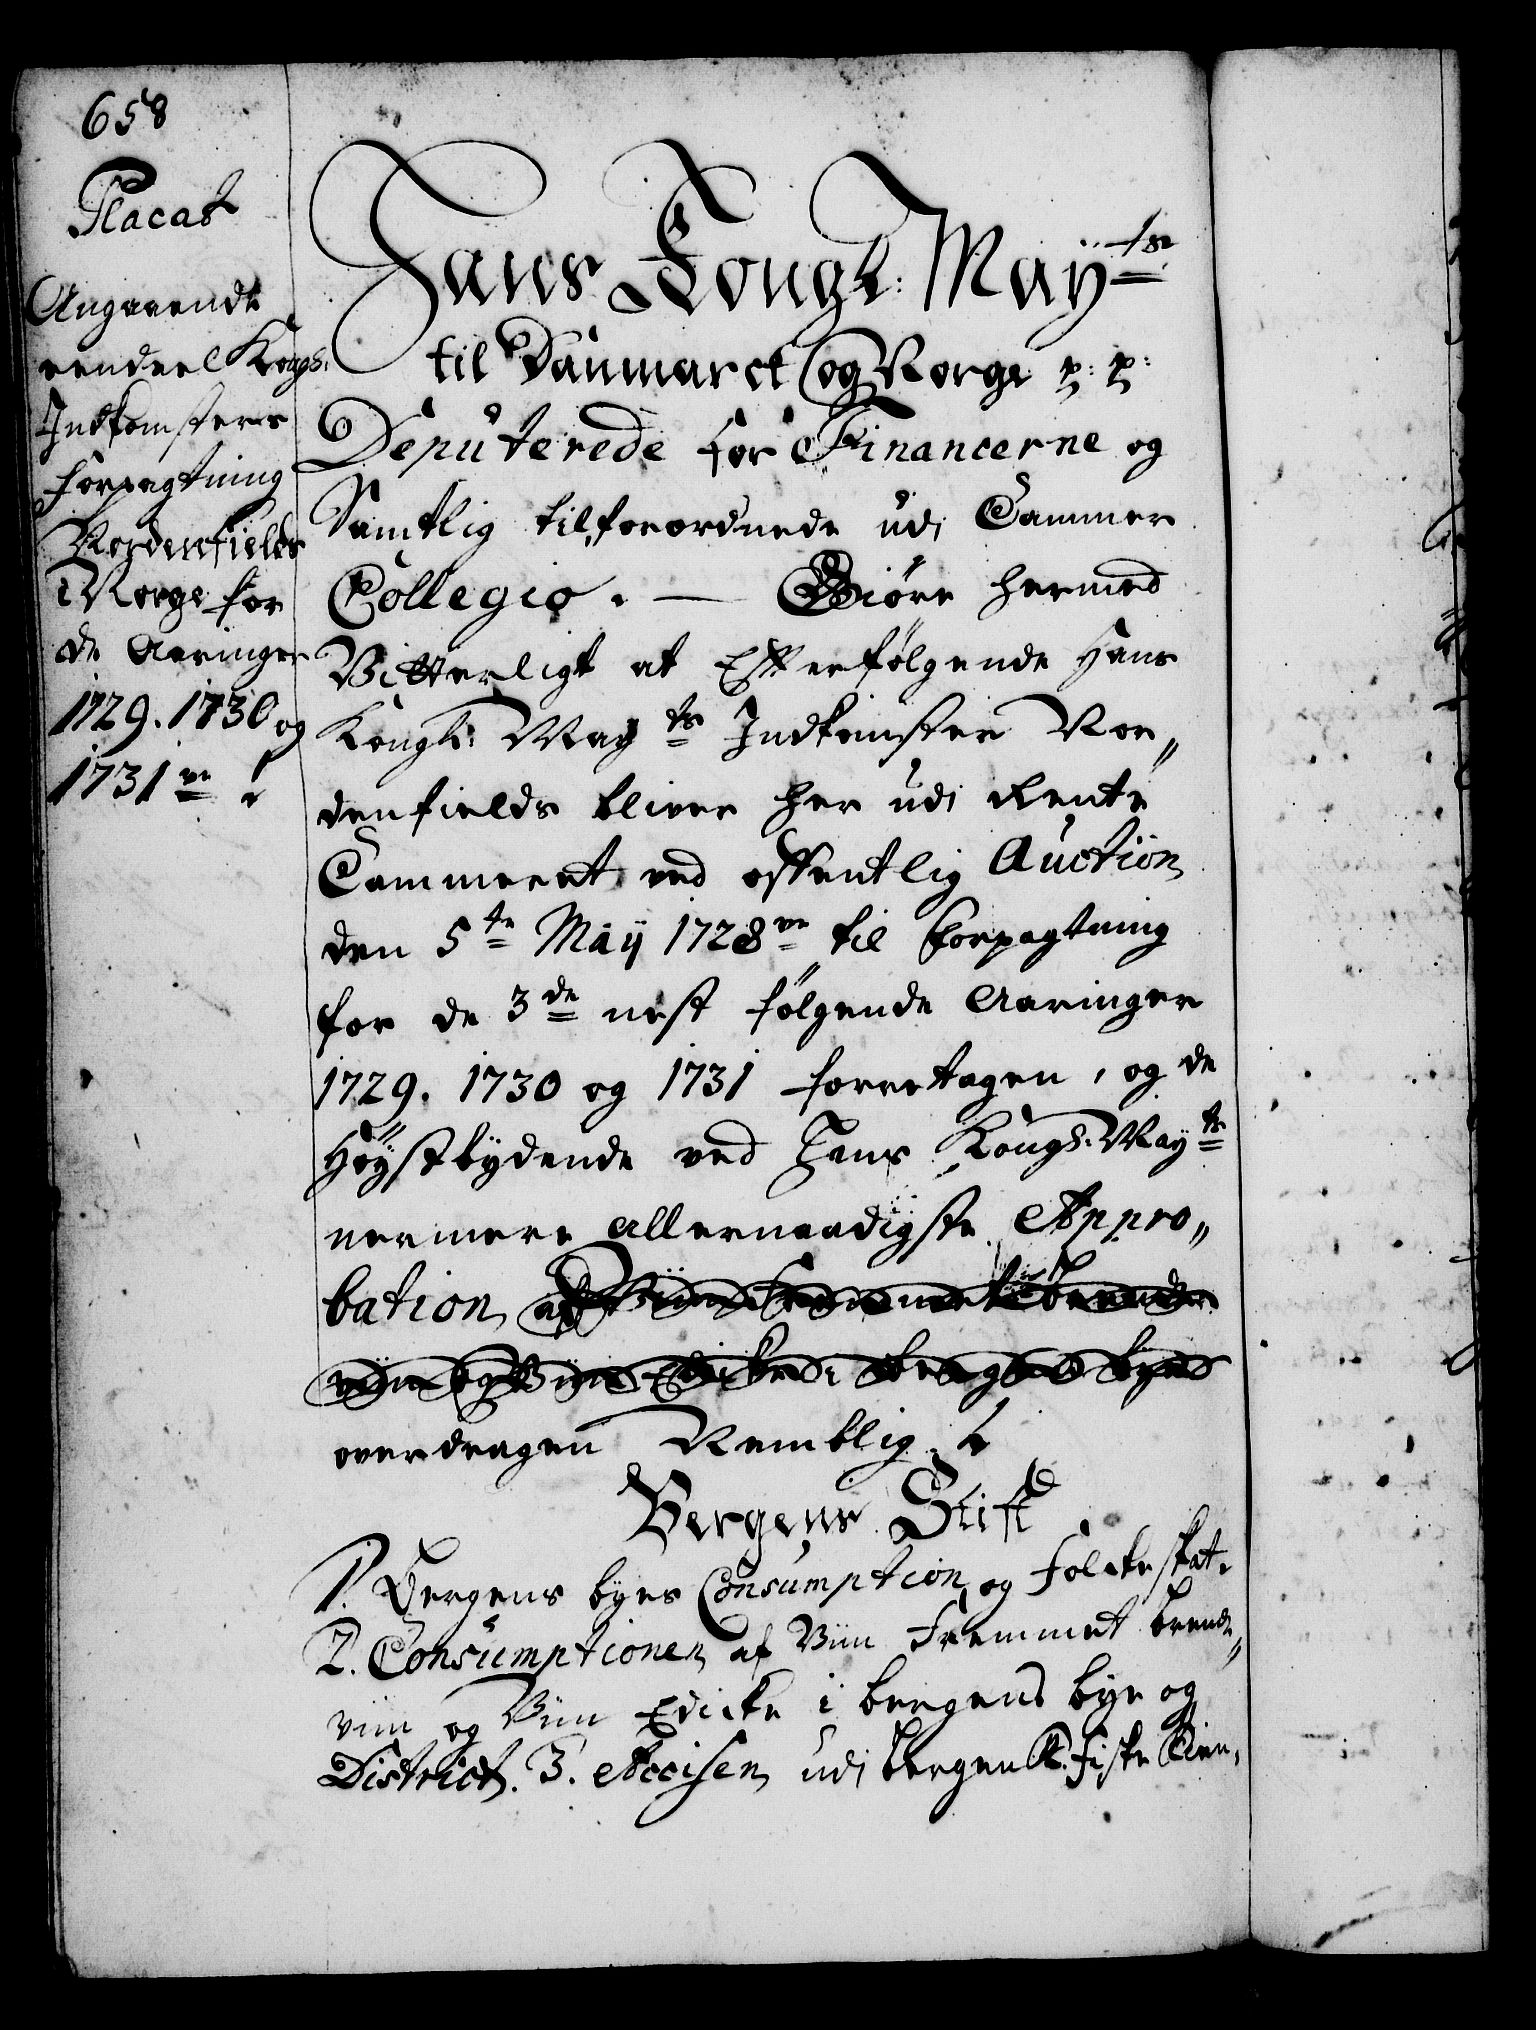 658
Placat
Angaaende
eendeel Kongl:
Indkomsters
forpagtning
Nordenfields
i Norge for
de Aaringer
1729. 1730 og
1731 ve
Hans Kongl: Maÿts
til Danmarck og Norge p: p:
Deputerede for Financerne og
Samtlig tilforordnede udi Cammer
Collegio. — Giöre hermed
Vitterligt at Efterfølgende Hans
Kongl: Mayts Indkomster Nor„
denfields bliver her udi Rente
Cammeret ved offentlig Auction
den 5te Maÿ 1728ve til forpagtning
for de 3de nest følgende Aaringer
1729. 1730 og 1731 foretagen, og de
Høystbydende ved Hans Kongl. Mayts
nermere allernaadigste Appro„
bation af Viin fremmet brende
viin og Viin Edicke i bergens bye
overdragen Nemblig
Bergens Stift
1. Bergens byes Consumption og Folckeskat.
2. Consumptionen af Viin Fremmet brende„
viin og Viin Edicke i bergens bye og
District. 3. Accisen udi bergen R. fiske